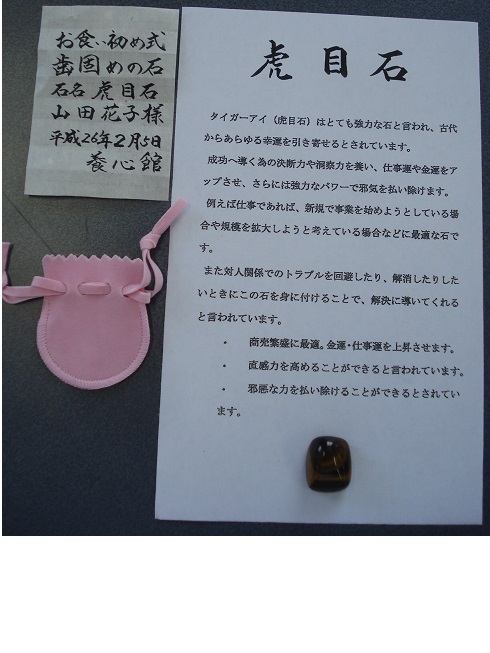 お食い初め式
歯固めの石
石名 虎目石
山田花子様
平成26年2月5日
養心館
虎目石
タイガーアイ（虎目石）はとても強力な石と言われ、古代
からあらゆる幸運を引き寄せるとされています。
成功へ導く為の決断力や洞察力を養い、仕事運や金運をア
ップさせ、さらには強力なパワーで邪気を払い除けます。
例えば仕事であれば、新規で事業を始めようとしている場
合や規模を拡大しようと考えている場合などに最適な石で
す。
また対人関係でのトラブルを回避したり、解消したりした
いときにこの石を身に付けることで、解決に導いてくれる
と言われています。
・ 商売繁盛に最適。金運・仕事運を上昇させます。
・ 直感力を高めることができると言われています。
・ 邪悪な力を払い除けることができるとされてい
ます。